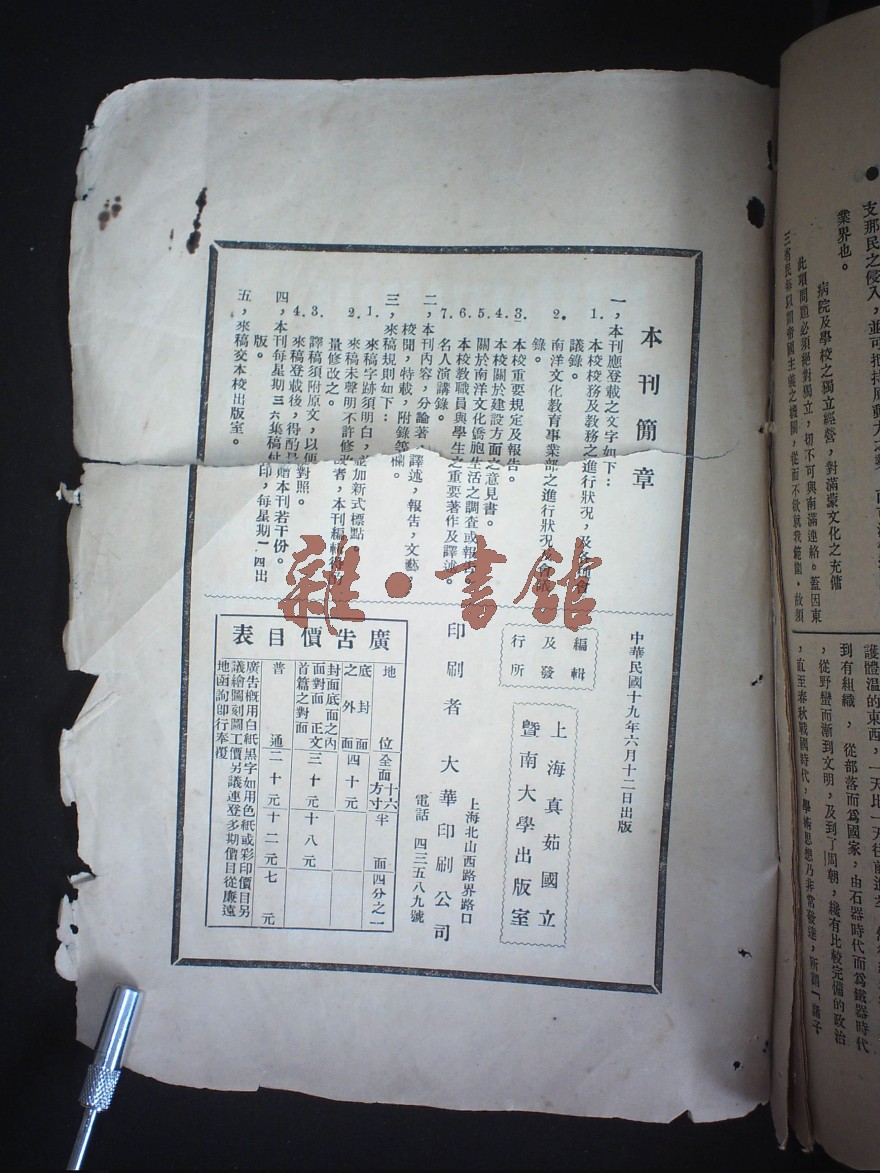 本刊簡章
一，本刊應登載之文字如下：
1. 本校校務及教務之進行狀況，及各
議錄。
2. 南洋文化教育事業部之進行狀況
錄。
3. 本校重要規定及報告。
4. 本校關於建設方面之意見書。
5. 關於南洋文化僑胞生活之調查或報
6. 本校教職員與學生之重要著作及譯述。
7. 名人演講錄。
二，本刊內容，分論著，譯述，報告，文藝，
校聞，特載，附錄等欄。
三，來稿規則如下：
1. 來稿字跡須明白，並加新式標點。
2. 來稿未聲明不許修改者，本刊編輯得
量修改之。
3. 譯稿須附原文，以便對照。
4. 來稿登載後，得酌量贈本刊若干份。
四，本刊每星期三六集稿付印，每星期一四出
版。
五，來稿交本校出版室。
中華民國十九年六月十二日出版
編輯
及發
行所
上海真茹國立
暨南大學出版室
印刷者 大華印刷公司
上海北山西路界路口
電話 四三五八九號
廣告價目表
地位 全面十六方寸 半面 四分之一
底封面之外面 四十元
封面底面之內面對面 正文首篇之對面 三十元 十八元
普通 二十元 十二元 七元
廣告概用白紙黑字如用色紙或彩印價目另
議繪圖刻圖工價另議連登多期價目從廉遠
地函詢即行奉覆
支那民之侵入，並可把持原動力之
業界也。
病院及學校之獨立經營，對滿蒙文化之充傭
此項問題必須絕對獨立，切不可與南滿連絡。蓋因東
三省民每以謂帝國主義之機關，從而不欲就我範圍，故須
護體溫的東西，一天比一天往前進
到有組織，從部落而為國家，由石器時代而為鐵器時代
，從野蠻而漸到文明，及到了周朝，纔有比較完備的政治
，直至春秋戰國時代，學術思想乃非常發達，所謂「諸子
雜·書館